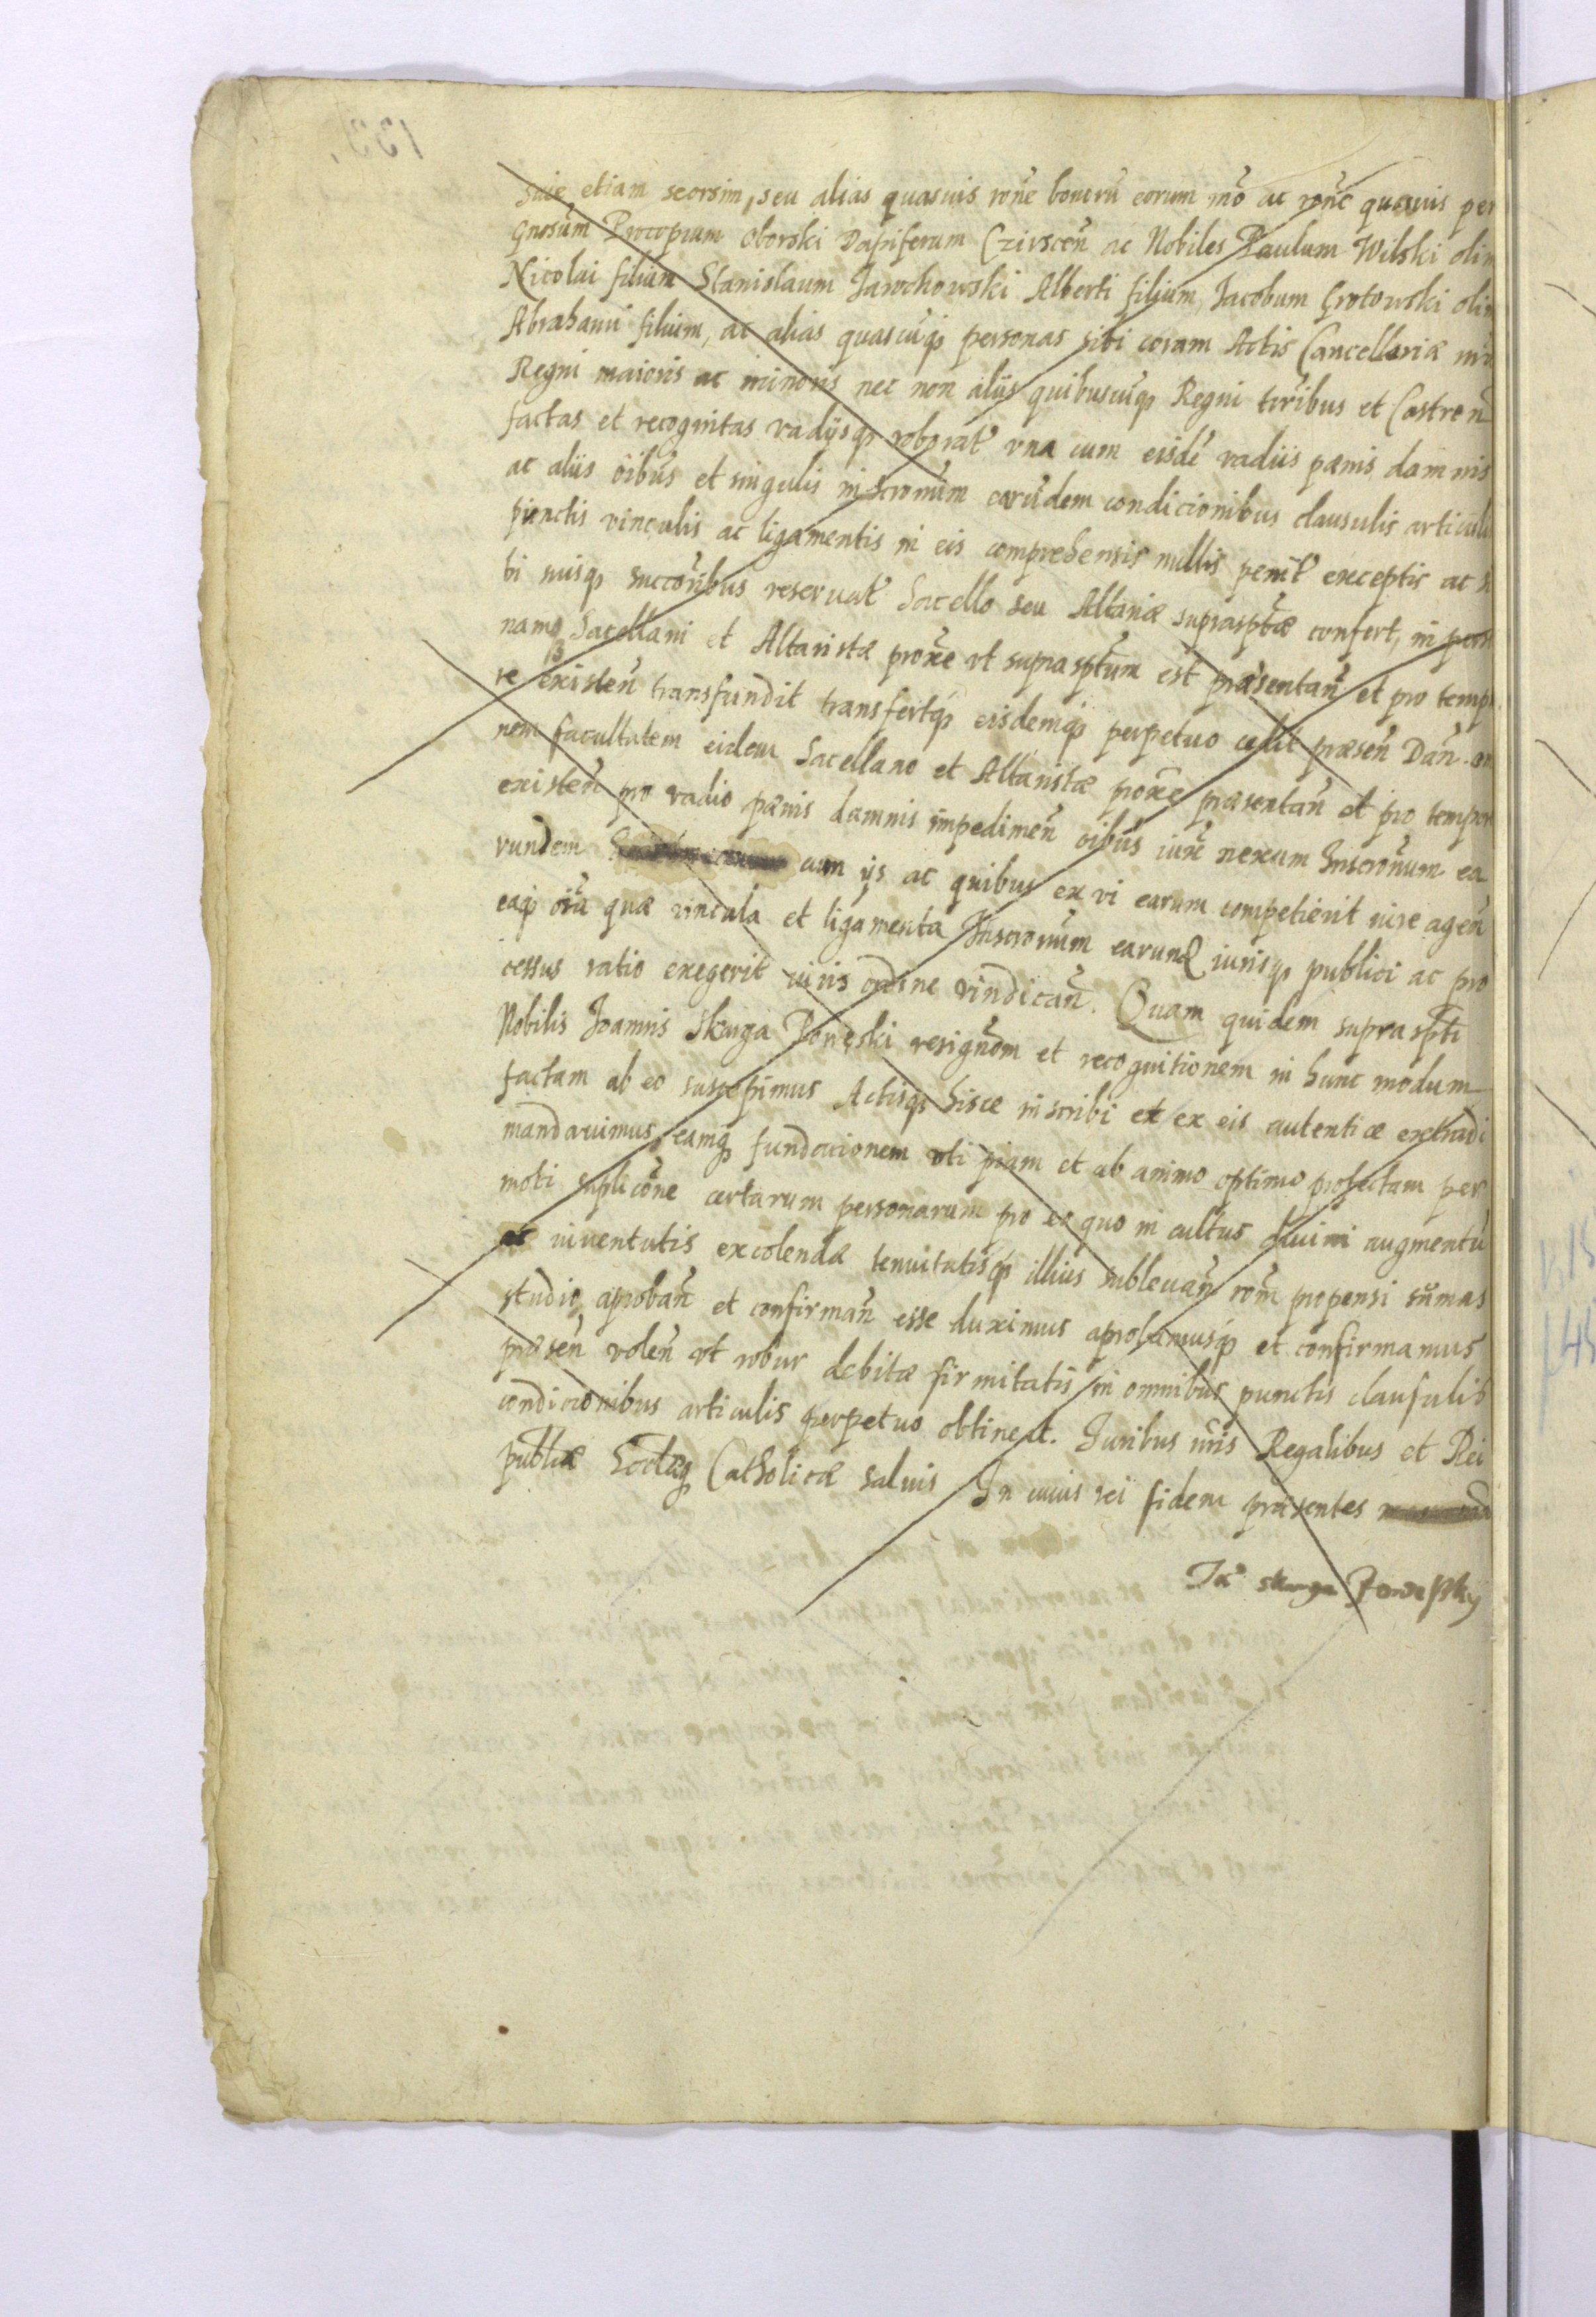 suie etiam seorsim, seu alias quasuis rōne bonorū eorum mō ac rōne quauis per
Gnosum Procopium Oborski Dapiferum Czirscen̄ ac Nobiles Paulum Wilski olim
Nicolai filium Stanislaum Jarochowski Alberti filium, Jacobum Grotowski olim
Abrahami filium, ac alias quascūq personas sibi coram Actis Cancellariæ nr̄o
Regni maioris ac minoris nec non aliis quibuscūq Regni tēribus et Castren̄
factas et recognitas vadijsq roborat̄ vna cum eisdē vadiis pænis damnis
ac aliis oībus et singulis inscronūm earūdem condicionibus clausulis articulis
punctis vinculis ac ligamentis in eis comprehensis nullis penit̄ exceptis ac si
bi suisq succōribus reseruat̄ Sacello seu Altariæ suprasptæ confert, in perso
namq Sacellani et Altaristæ proxe vt suprasptum est præsentan̄ et pro tempo
re existen̄ transfundit transfertq eisdemq perpetuo cedit præsen̄ Dan̄ om
nem facultatem eidem Sacellano et Altaristæ proxe præsentan̄ et pro tempore
existen̄ pro vadio pænis damnis impedimen̄ oibus iuxē nexum Inscronum ea
rundem cum ijs ac quibus ex vi earum competierit iure agen̄
eaq oīa quæ vincula et ligamenta Inscronum earund iurisq publici ac pro
cessus ratio exegerit iuris ordine vindican̄. Quam quidem supraspti
Nobilis Joannis Skarga Poneski resignōm et recognitionem in hunc modum
factam ab eo suscepimus Actisq hisce inscribi et ex eis autenticæ extradi
mandauimus, eamq fundacionem vti piam et ab animo optimo profectam per
moti suplicōne certarum personarum pro eo quo in cultus diuini augmentū
ac iuuentutis excolendæ tenuitatisq illius subleuan̄ rōm propensi sumas
studio, aproban̄ et confirman̄ esse duximus aprobamusq et confirmamus
præsen̄ volen̄ vt robur debitæ firmitatis in omnibus punctis clausulis
condicionibus articulis perpetuo obtineat. Iuribus nr̄is Regalibus et Rei
publicæ Ecclæq Catholicæ saluis In cuius rei fidem præsentes
Jā skarga Ponespky